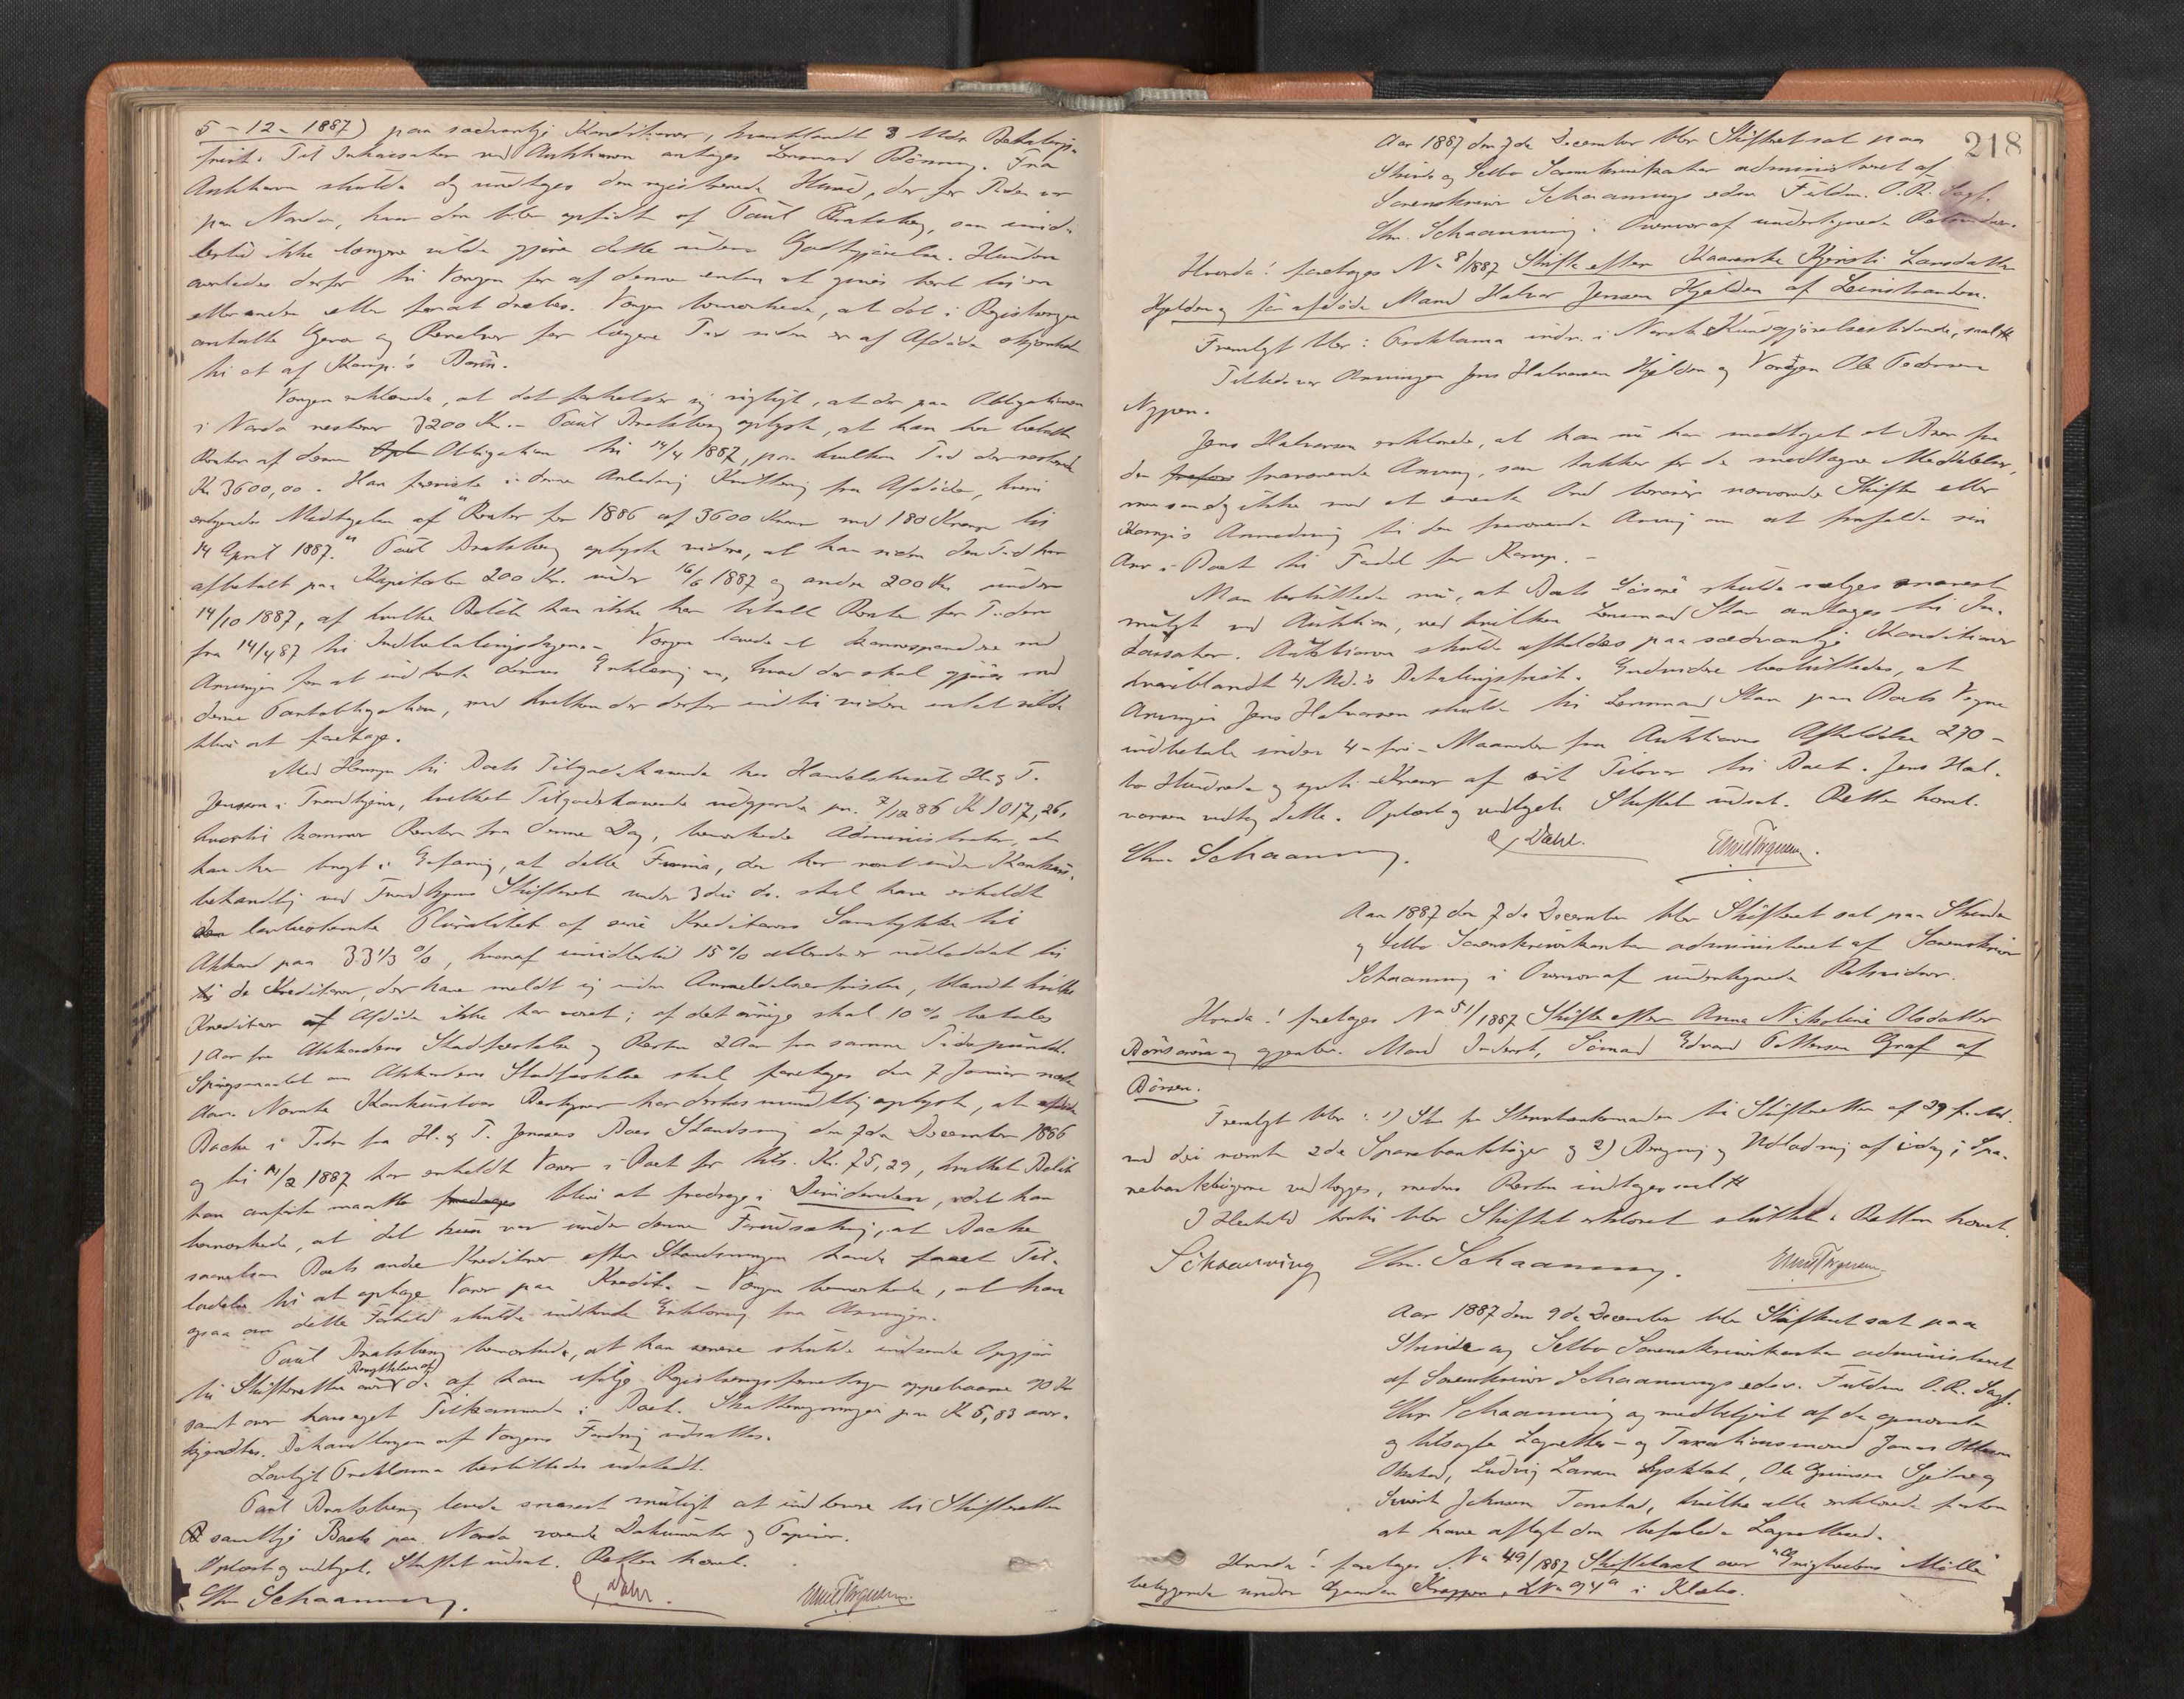 5-12-1887) paa sædvanlige Konditioner, hvoriblandt 3 Mdrs Betalings-
frist. Til Inkassator ved Auktionen antages Lensmand Rönning. Fra
Auktionen skulde dog undtages den registrerede Hund, der for Tiden er
paa Nordre, hvor den blev opfödt af Paul Bratsberg, som imid-
lertid ikke længere vilde gjöre dette uden Godtgjörelse. Hunden
overlades derfor til Vergen for af denne enten at gives bort til en
eller anden eller forat dræbes. Vergen bemærkede, at det i Registreringen
anförte Gevær og Revolver for længere Tid siden er af Afdöde skjænket
til et af Komp.'s Börn.
Vergen erklærede, at det forholder sig rigtigt, at der paa Obligationen
i Nordre resterer 3200 Kr. - Paul Bratsberg oplyste, at han har betalt
Renter af denne Obligation til 14/4 1887, paa hvilken Tid der resterede
Kr 3600,00. Han foreviste i denne Anledning Kvittering fra Afdöde, hvori
erkjendes Modtagelsen af "Renter for 1886 af 3600 Kroner med 180 Kroner til
14 April 1887." Paul Bratsberg oplyste videre, at han siden den Tid har
afbetalt paa Kapitalen 200 Kr. under 16/6 1887 og andre 200 Kr under
14/10 1887, af hvilke Belöb han ikke har betalt Rente for Tiden
fra 14/4 87 til Indbetalingsdagene. Vergen lovede at korrespondere med
Arvingen for at indhente dennes Erklæring om, hvad der skal gjöres med
denne Pantobligation, med hvilken der derfor indtil videre intet vilde
blive at foretage.
Med Hensyn til Boets Tilgodehavende hos Handelshuset H. & T.
Jenssen i Trondhjem, hvilket Tilgodehavende udgjorde pr. 7/12 86 Kr 1017,26,
hvortil kommer Renter fra denne Dag, bemærkede Administrator, at
han har bragt i Erfaring, at dette Firma, der har været under Konkurs-
behandling ved Trondhjems Skifteret under 3die ds. skal have erholdt
lovbestemte Pluralitet af sine Kreditorers Samtykke til
Akkord paa 33 1/3 %, hvoraf imidlertid 15 % allerede er udloddet til
de Kreditorer, der have meldt sig inden Anmeldelsesfristen, blandt hvilke
Kreditorer Afdöde ikke har været; af det övrige skal 10 % betales
1 Aar fra Akkordens Stadfæstelse og Resten 2 Aar fra samme Tidspunkt.
Spörgsmaalet om Akkordens Stadfæstelse skal foretages den 7 Januar næste
Aar. Nævnte Konkursboes Bestyrer har derhos mundtlig oplyst, at afdöde
Bache i Tiden fra H. & T. Jenssens Boes Standsning den 7de December 1886
og til 11/2 1887 har erholdt Varer i Boet for tils. Kr. 75,29, hvilket Belöb
han anförte maatte blive at fradrage i Dividenden, idet han
bemærkede, at det kun var under denne Forudsætning, at Bache
saavelsom Boets andre Kreditorer efter Standsningen havde faaet Til-
ladelse til at optage Varer paa Kredit. - Vergen bemærkede, at han
ogsaa om dette Forhold skulde indhente Erklæring fra Arvingen.
Paul Bratsberg bemærkede, at han senere skulde indsende Opgjör
til Skifteretten over Benyttelsen af de af ham ifölge Registreringsforretningen oppebaarne 90 Kr
samt over hans eget Tilkommende i Boet. Skatteregningen paa Kr 5,83 aner-
kjendtes. Behandlingen af Vergens Fordring udsattes.
Lovligt Proklama besluttedes udstedt.
Paul Bratsberg lovede snarest muligt at indlevere til Skifteretten
samtlige Boets paa Nordre værende Dokumenter og Papirer.
Oplæst og vedtaget. Skiftet udsat. Retten hævet.
Chr. Schaanning. E. Dahl. Emil Torgersen.
218
Aar 1887 den 7de December blev Skifteret sat paa
Strinde og Selbo Sorenskriverkontor administreret af
Sorenskriver Schaannings edsv. Fuldm. O. R. Sagf.
Chr. Schaanning i Overvær af undertegnede Retsvidner.
Hvorda! foretoges No 8/1887 Skifte efter Kaarenke Kjersti Larsdatter
Hjelden og för afdöde Mand Halvor Jensen Hjelden af Leinstranden.
Fremlagt blev: Proklama indr. i Norsk Kundgjörelsestidende, saal. #
Tilstede var Arvingen Jens Halvorsen Hjelden og Vergen Ole Pedersen
Nypen.
Jens Halvorsen erklærede, at han nu har modtaget et Brev fra
den fraværende Arving, som takker for de modtagne Meddelelser,
men som dog ikke med et eneste Ord berörer nærværende Skifte eller
Komp's Anmodning til den fraværende Arving om at frafalde sin
Arv i Boet til Fordel for Komp. -
Man besluttede nu, at Boets Lösöre skulde sælges snarest
muligt ved Auktion, ved hvilken Lensmand Stav antages til In-
kassator. Auktionen skulde afholdes paa sædvanlige Konditioner
hvoriblandt 4 Md.'s Betalingsfrist. Endvidere besluttedes, at
Arvingen Jens Halvorsen skulde til Lensmand Stav paa Boets Vegne
indbetale inden 4 - fire - Maaneder fra Auktionens Afholdelse 270 -
to Hundrede og sytti - Kroner af sit Tilsvar til Boet. Jens Hal-
vorsen vedtog dette. Oplæst og vedtaget. Skiftet udsat. Retten hævet.
Chr. Schaanning. E. Dahl. Emil Torgersen.
Aar 1887 den 7de December blev Skifteret sat paa Strinde
og Selbo Sorenskriverkontor administreret af Sorenskriver
Schaanning i Overvær af undertegnede Retsvidner.
Hvorda! foretoges No 51/1887 Skifte efter Anna Nikoline Olsdatter
Börsören og gjenlev. Mand Inderst, Sömand Edvard Pettersen Graf af
Börsen.
Fremlagt blev: 1) Skr. fra til Skifteretten af 29 f. Md.
med deri nævnte 2de Sparebankböger og 2) Beregning og Udlodning af idag; Spa-
rebankbögerne vedlægges, medens Resten indtages saal. #
I Henhold hertil blev Skiftet erklæret sluttet. Retten hævet.
Schaanning Chr. Schaanning. Emil Torgersen.
Aar 1887 den 9de December blev Skifteret sat paa
Strinde og Selbo Sorenskriverkontor administreret
af Sorenskriver Schaannings edsv. Fuldm O. R. Sagf.
Chr Schaanning og medbetjent af de opnævnte
og tilsagte Lagrettes- og Taxationsmænd Jonas Olsen
Okstad, Ludvig Larsen Lysklet, Ole Grimsen Sjetne og
Sivert Johnsen Tonstad, hvilke alle erklærede forhen
at have aflagt den befalede Lagrettesed.
Hvorda! foretoges No 49/1887 Skiftetaxt over "Enighedens Mölle"
beliggende under Gaarden Kroppen, LNo 94a i Klæbo.